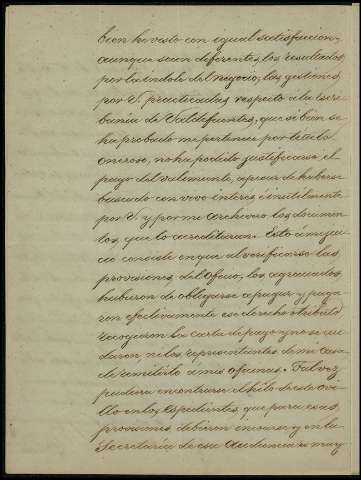 bien he visto con igual satisfacción,
aunque sean diferentes, los resultados,
por la índole del negocio, las gestiones,
por V. practicadas, respecto a la Escri-
banía de Valdefuentes, que si bien se
ha probado me pertenece por título
oneroso, no ha podido justificarse el
pago del valimiento, a pesar de haberse
buscado con vivo interés e inutilmente
por V. y por mi Archivero los documen-
tos, que lo acreditaran. Esto a mi jui-
cio consiste en que al verificarse las,
provisiones, del oficio, los agraciados,
hubieron de obligarse a pagar y paga-
ron efectivamente ese derecho o tributo
recogieron la carta de pago y no se cui-
daron ni los representantes de mi casa
de remitirlo a mis oficinas. Tal vez
pudiera encontrarse el hilo de este ovi-
llo en los, Espedientes, que para esas,
provisiones debieron incoarse y en la
Secretaría de esa Audiencia o muy